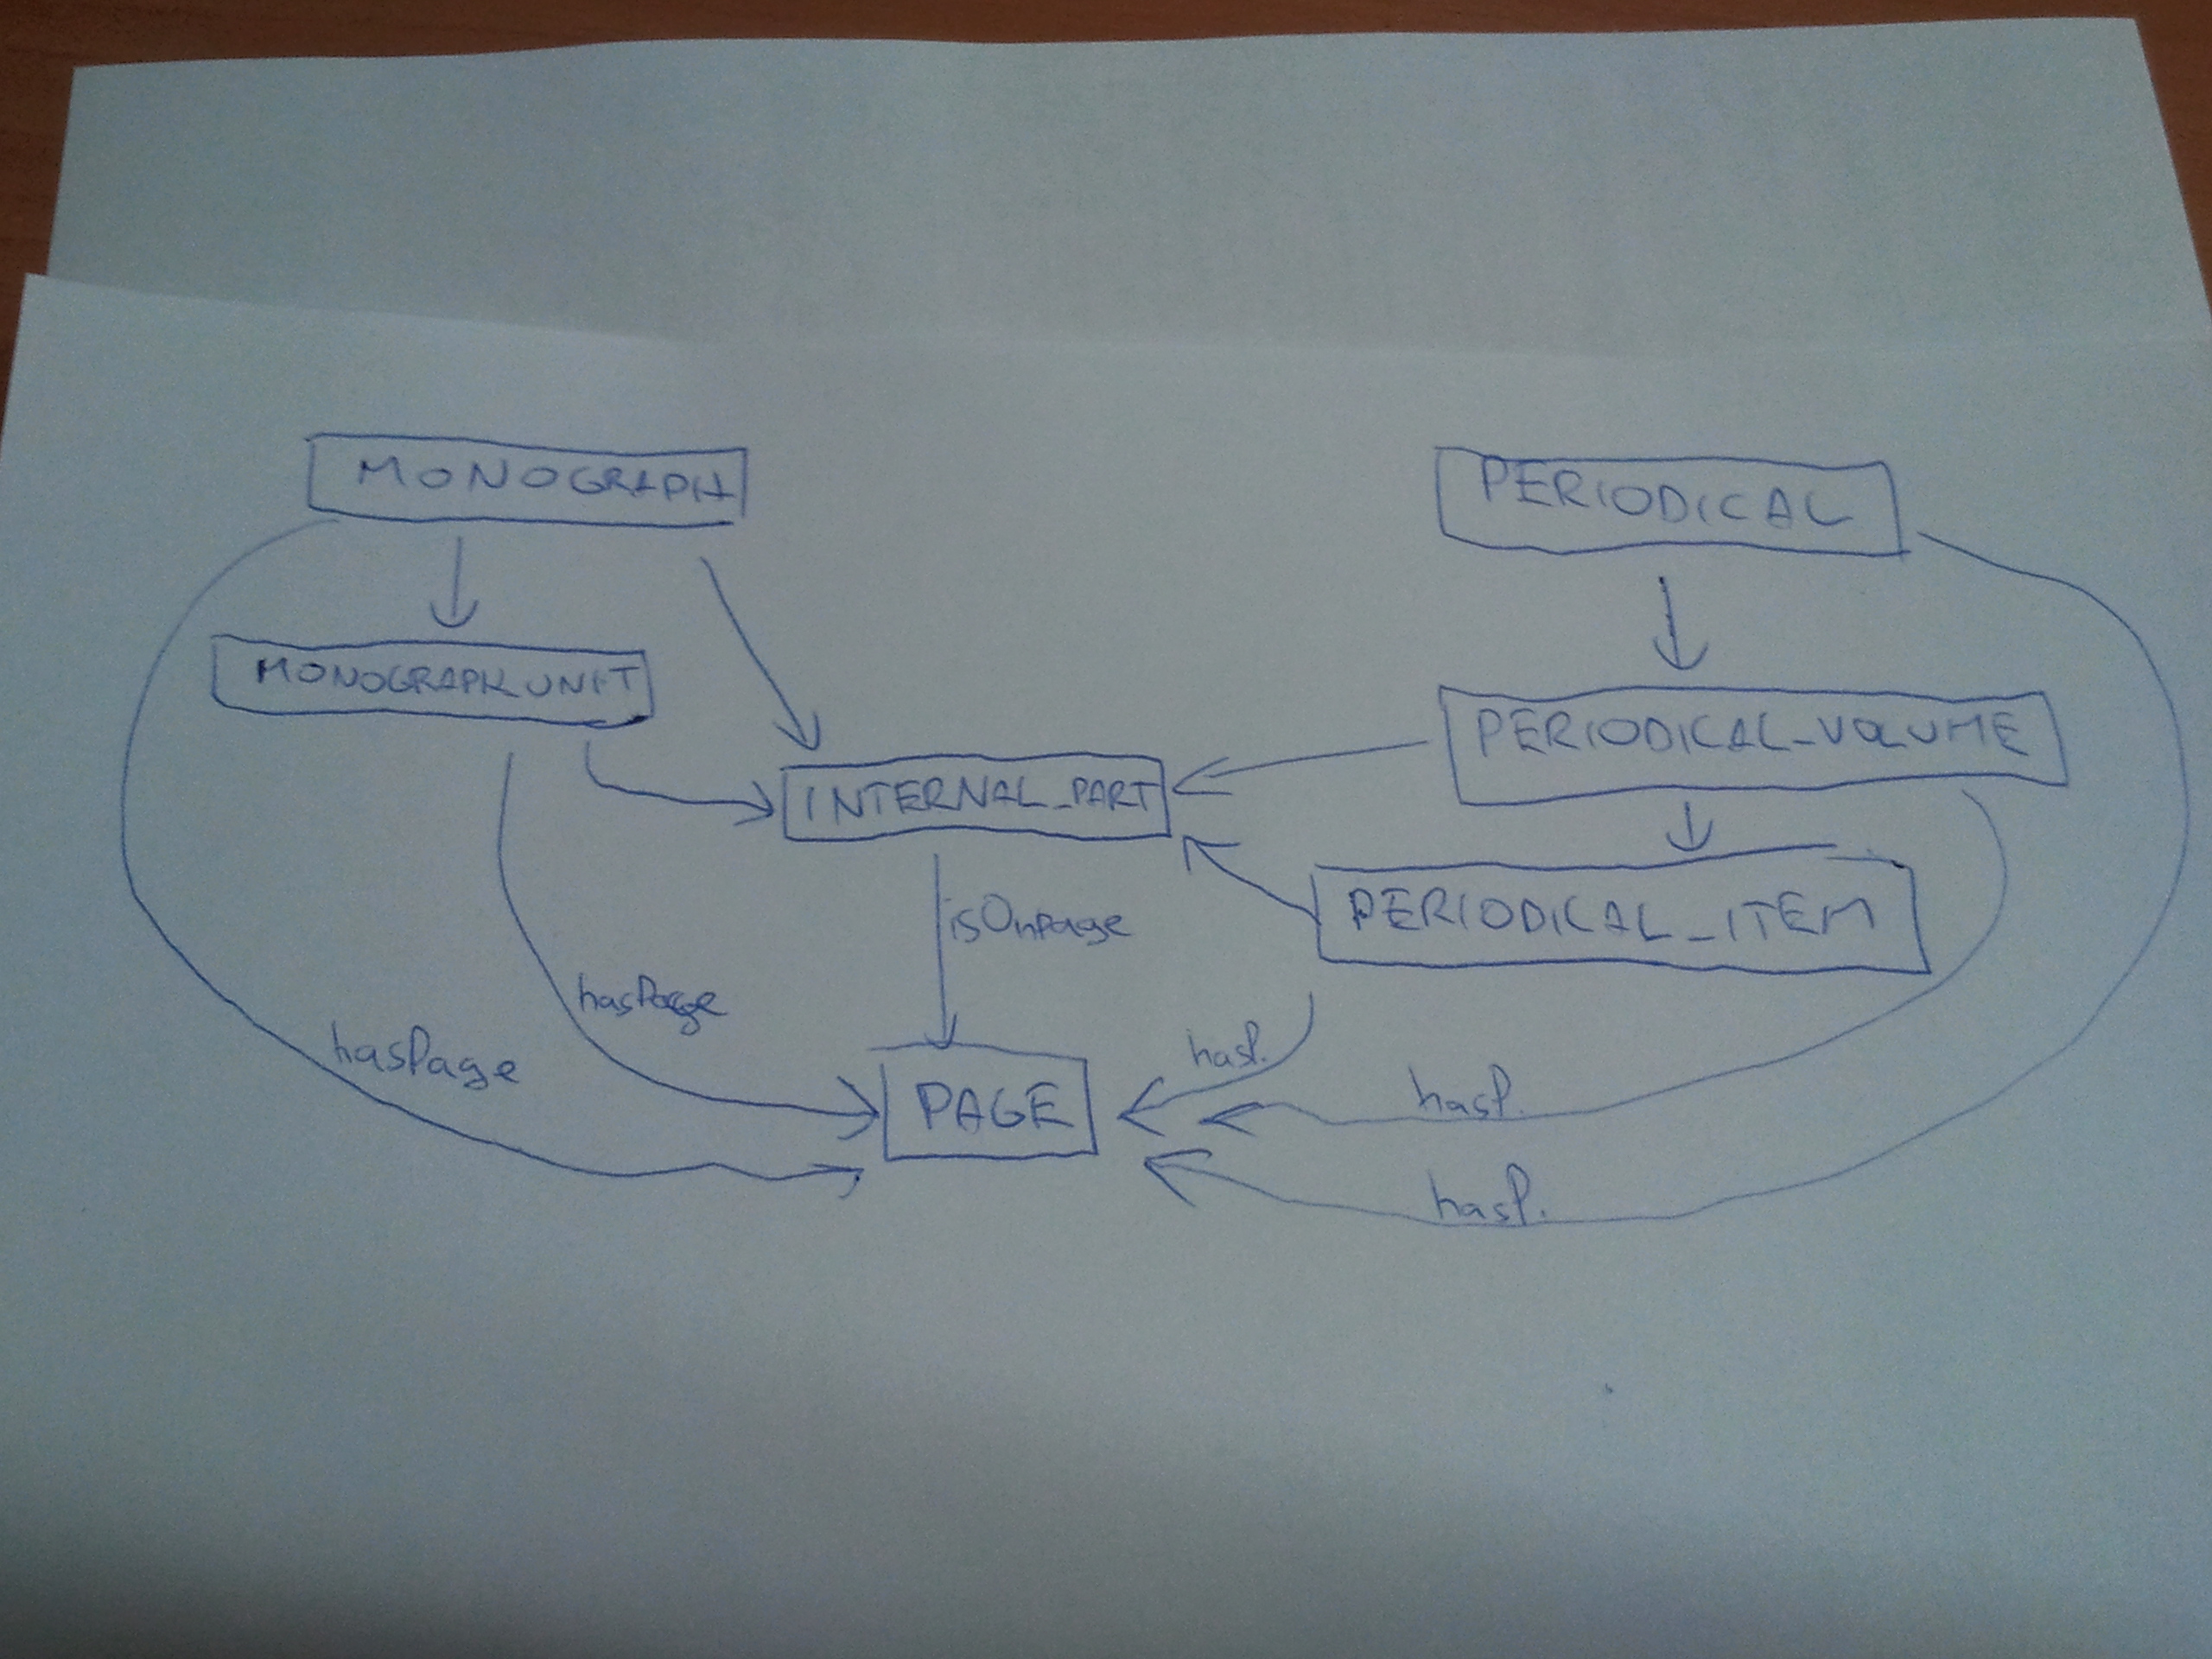 MONOGRAPH
PERIODICAL
MONOGRAPHUNIT
PERIODICAL_VOLUME
INTERNAL_PART
PERIODICAL_ITEM
isOnpage
hasPage
hasPage
hasP.
hasP.
PAGE
hasP.